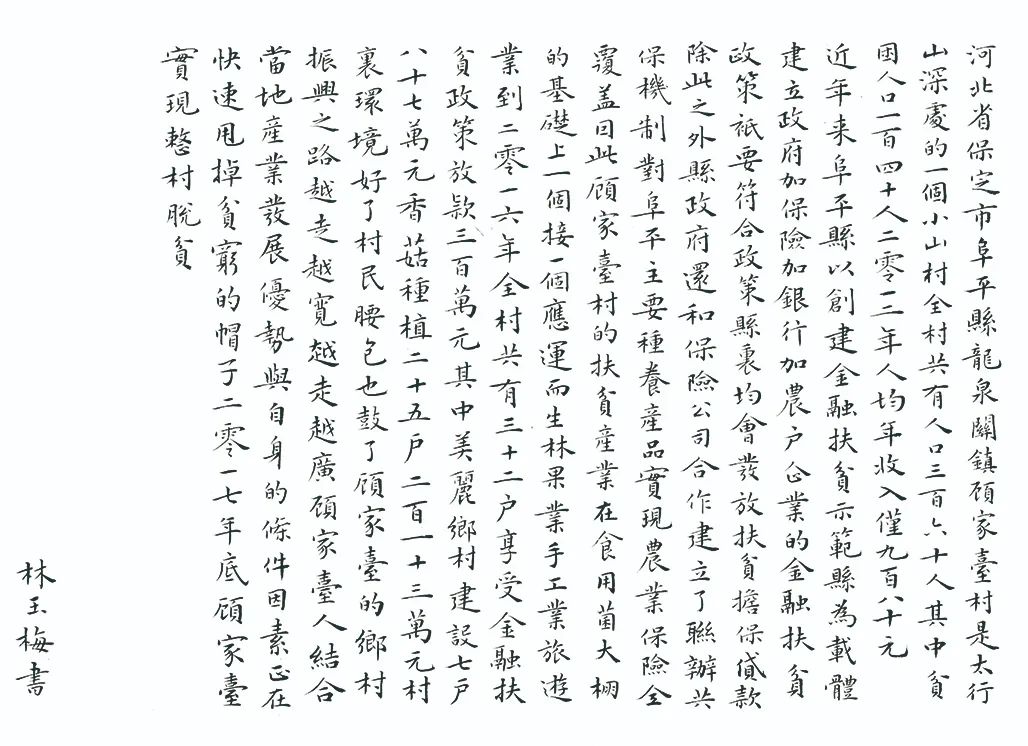 河北省保定市阜平縣龍泉關鎮顧家臺村是太行
山深處的一個小山村全村共有人口三百六十人其中貧
困人口一百四十人二零一三年人均年收入僅九百八十元
近年来阜平縣以創建金融扶貧示範縣為載體
建立政府加保險加銀行加農户企業的金融扶貧
政策祇要符合政策縣裏均會發放扶貧擔保貸款
除此之外縣政府還和保險公司合作建立了聯辦共
保機制對阜平主要種養産品實現農業保險全
覆盖因此顧家臺村的扶貧産業在食用菌大棚
的基礎上一個接一個應運而生林果業手工業旅遊
業到二零一六年全村共有三十二户享受金融扶
貧政策放款三百萬元其中美麗鄉村建設七户
八十七萬元香菇種植二十五户二百一十三萬元村
裏環境好了村民腰包也鼓了顧家臺的鄉村
振興之路越走越寬越走越廣顧家臺人結合
當地産業發展優勢與自身的條件因素正在
快速甩掉貧窮的帽子二零一七年底顧家臺
實現整村脫貧
林玉梅書